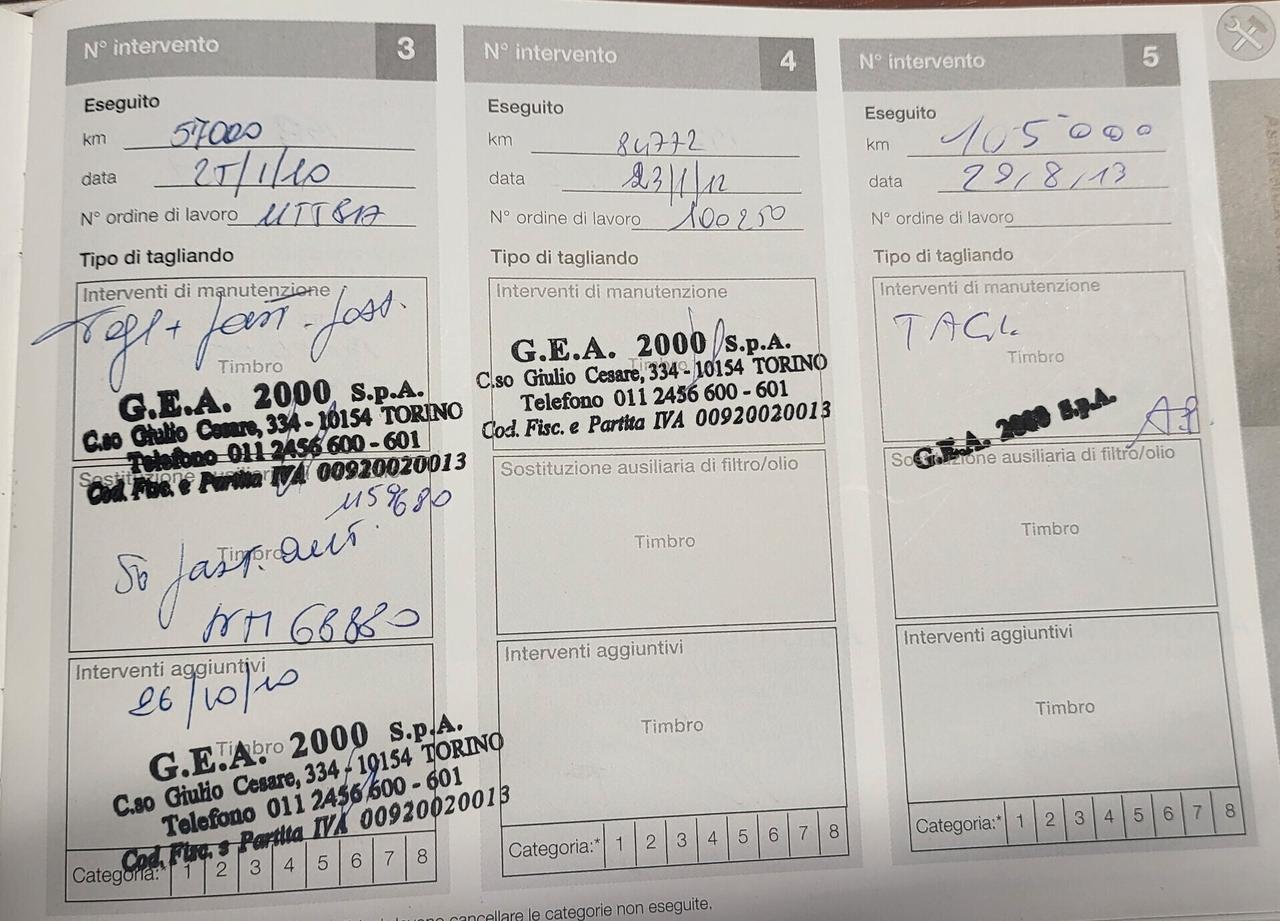 N° intervento 3
Eseguito
km 57000
data 25/1/10
N° ordine di lavoro
Tipo di tagliando
Interventi di manutenzione
Timbro
G.E.A. 2000 S.p.A.
C.so Giulio Cesare, 334 - 10154 TORINO
Telefono 011 2456 600 - 601
Cod. Fisc. e Partita IVA 00920020013
Timbro
KM 68880
Interventi aggiuntivi
26/10/10
Timbro
G.E.A. 2000 S.p.A.
C.so Giulio Cesare, 334 - 10154 TORINO
Telefono 011 2456 600 - 601
Cod. Fisc. e Partita IVA 00920020013
Categoria:* 1 2 3 4 5 6 7 8
N° intervento 4
Eseguito
km 84772
data 23/1/12
N° ordine di lavoro 100250
Tipo di tagliando
Interventi di manutenzione
G.E.A. 2000 S.p.A.
C.so Giulio Cesare, 334 - 10154 TORINO
Telefono 011 2456 600 - 601
Cod. Fisc. e Partita IVA 00920020013
Sostituzione ausiliaria di filtro/olio
Timbro
Interventi aggiuntivi
Timbro
Categoria:* 1 2 3 4 5 6 7 8
N° intervento 5
Eseguito
km 105000
data 29/8/13
N° ordine di lavoro
Tipo di tagliando
Interventi di manutenzione
TAGL.
Timbro
G.E.A. 2000 S.p.A.
Sostituzione ausiliaria di filtro/olio
Timbro
Interventi aggiuntivi
Timbro
Categoria:* 1 2 3 4 5 6 7 8
cancellare le categorie non eseguite.